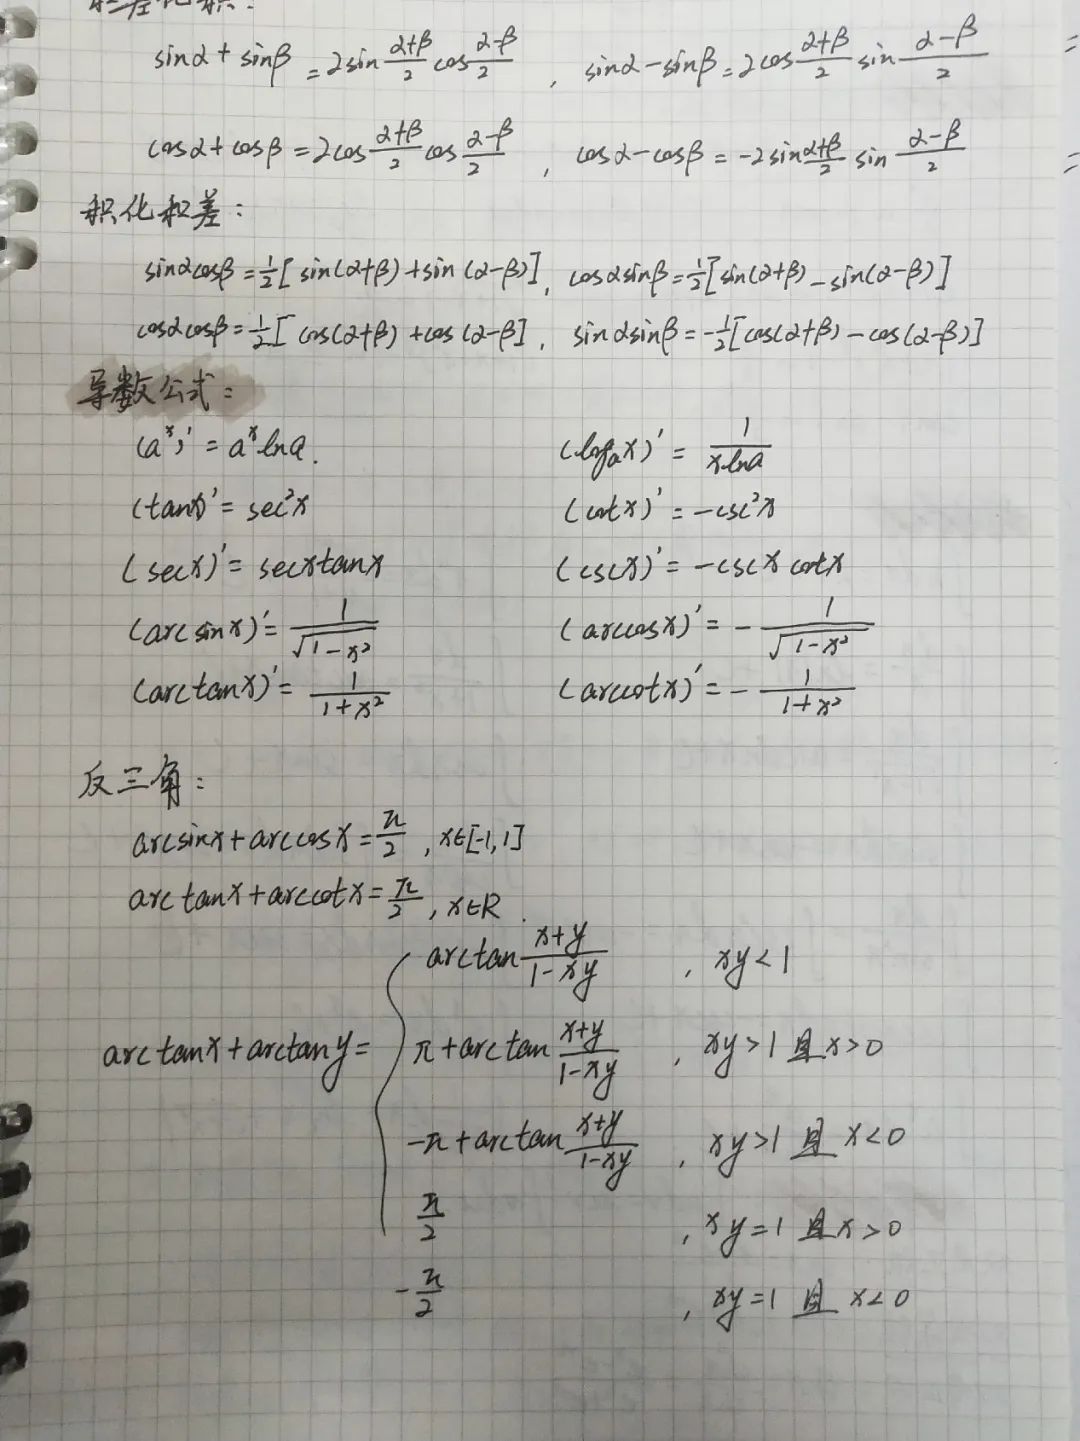 和差化积:
sinα + sinβ = 2sin (α+β)/2 cos (α-β)/2 , sinα - sinβ = 2cos (α+β)/2 sin (α-β)/2 =
cosα + cosβ = 2cos (α+β)/2 cos (α-β)/2 , cosα - cosβ = -2sin (α+β)/2 sin (α-β)/2 =
积化和差:
sinαcosβ = 1/2[sin(α+β)+sin(α-β)], cosαsinβ = 1/2[sin(α+β)-sin(α-β)]
cosαcosβ = 1/2[cos(α+β)+cos(α-β], sinαsinβ = -1/2[cos(α+β)-cos(α-β)]
导数公式:
(a^x)' = a^x lna. (log_a x)' = 1/(xlna)
(tanx)' = sec²x (cotx)' = -csc²x
(secx)' = secxtanx (cscx)' = -cscx cotx
(arcsinx)' = 1/√(1-x²) (arccosx)' = -1/√(1-x²)
(arctanx)' = 1/(1+x²) (arccotx)' = -1/(1+x²)
反三角:
arcsinx+arccosx = π/2, x∈[-1,1]
arctanx+arccotx = π/2, x∈R.
arctan (x+y)/(1-xy) , xy<1
arctanx+arctany = π+arctan (x+y)/(1-xy) , xy>1 且x>0
-π+arctan (x+y)/(1-xy) , xy>1 且 x<0
π/2 , xy=1 且x>0
-π/2 , xy=1 且 x<0